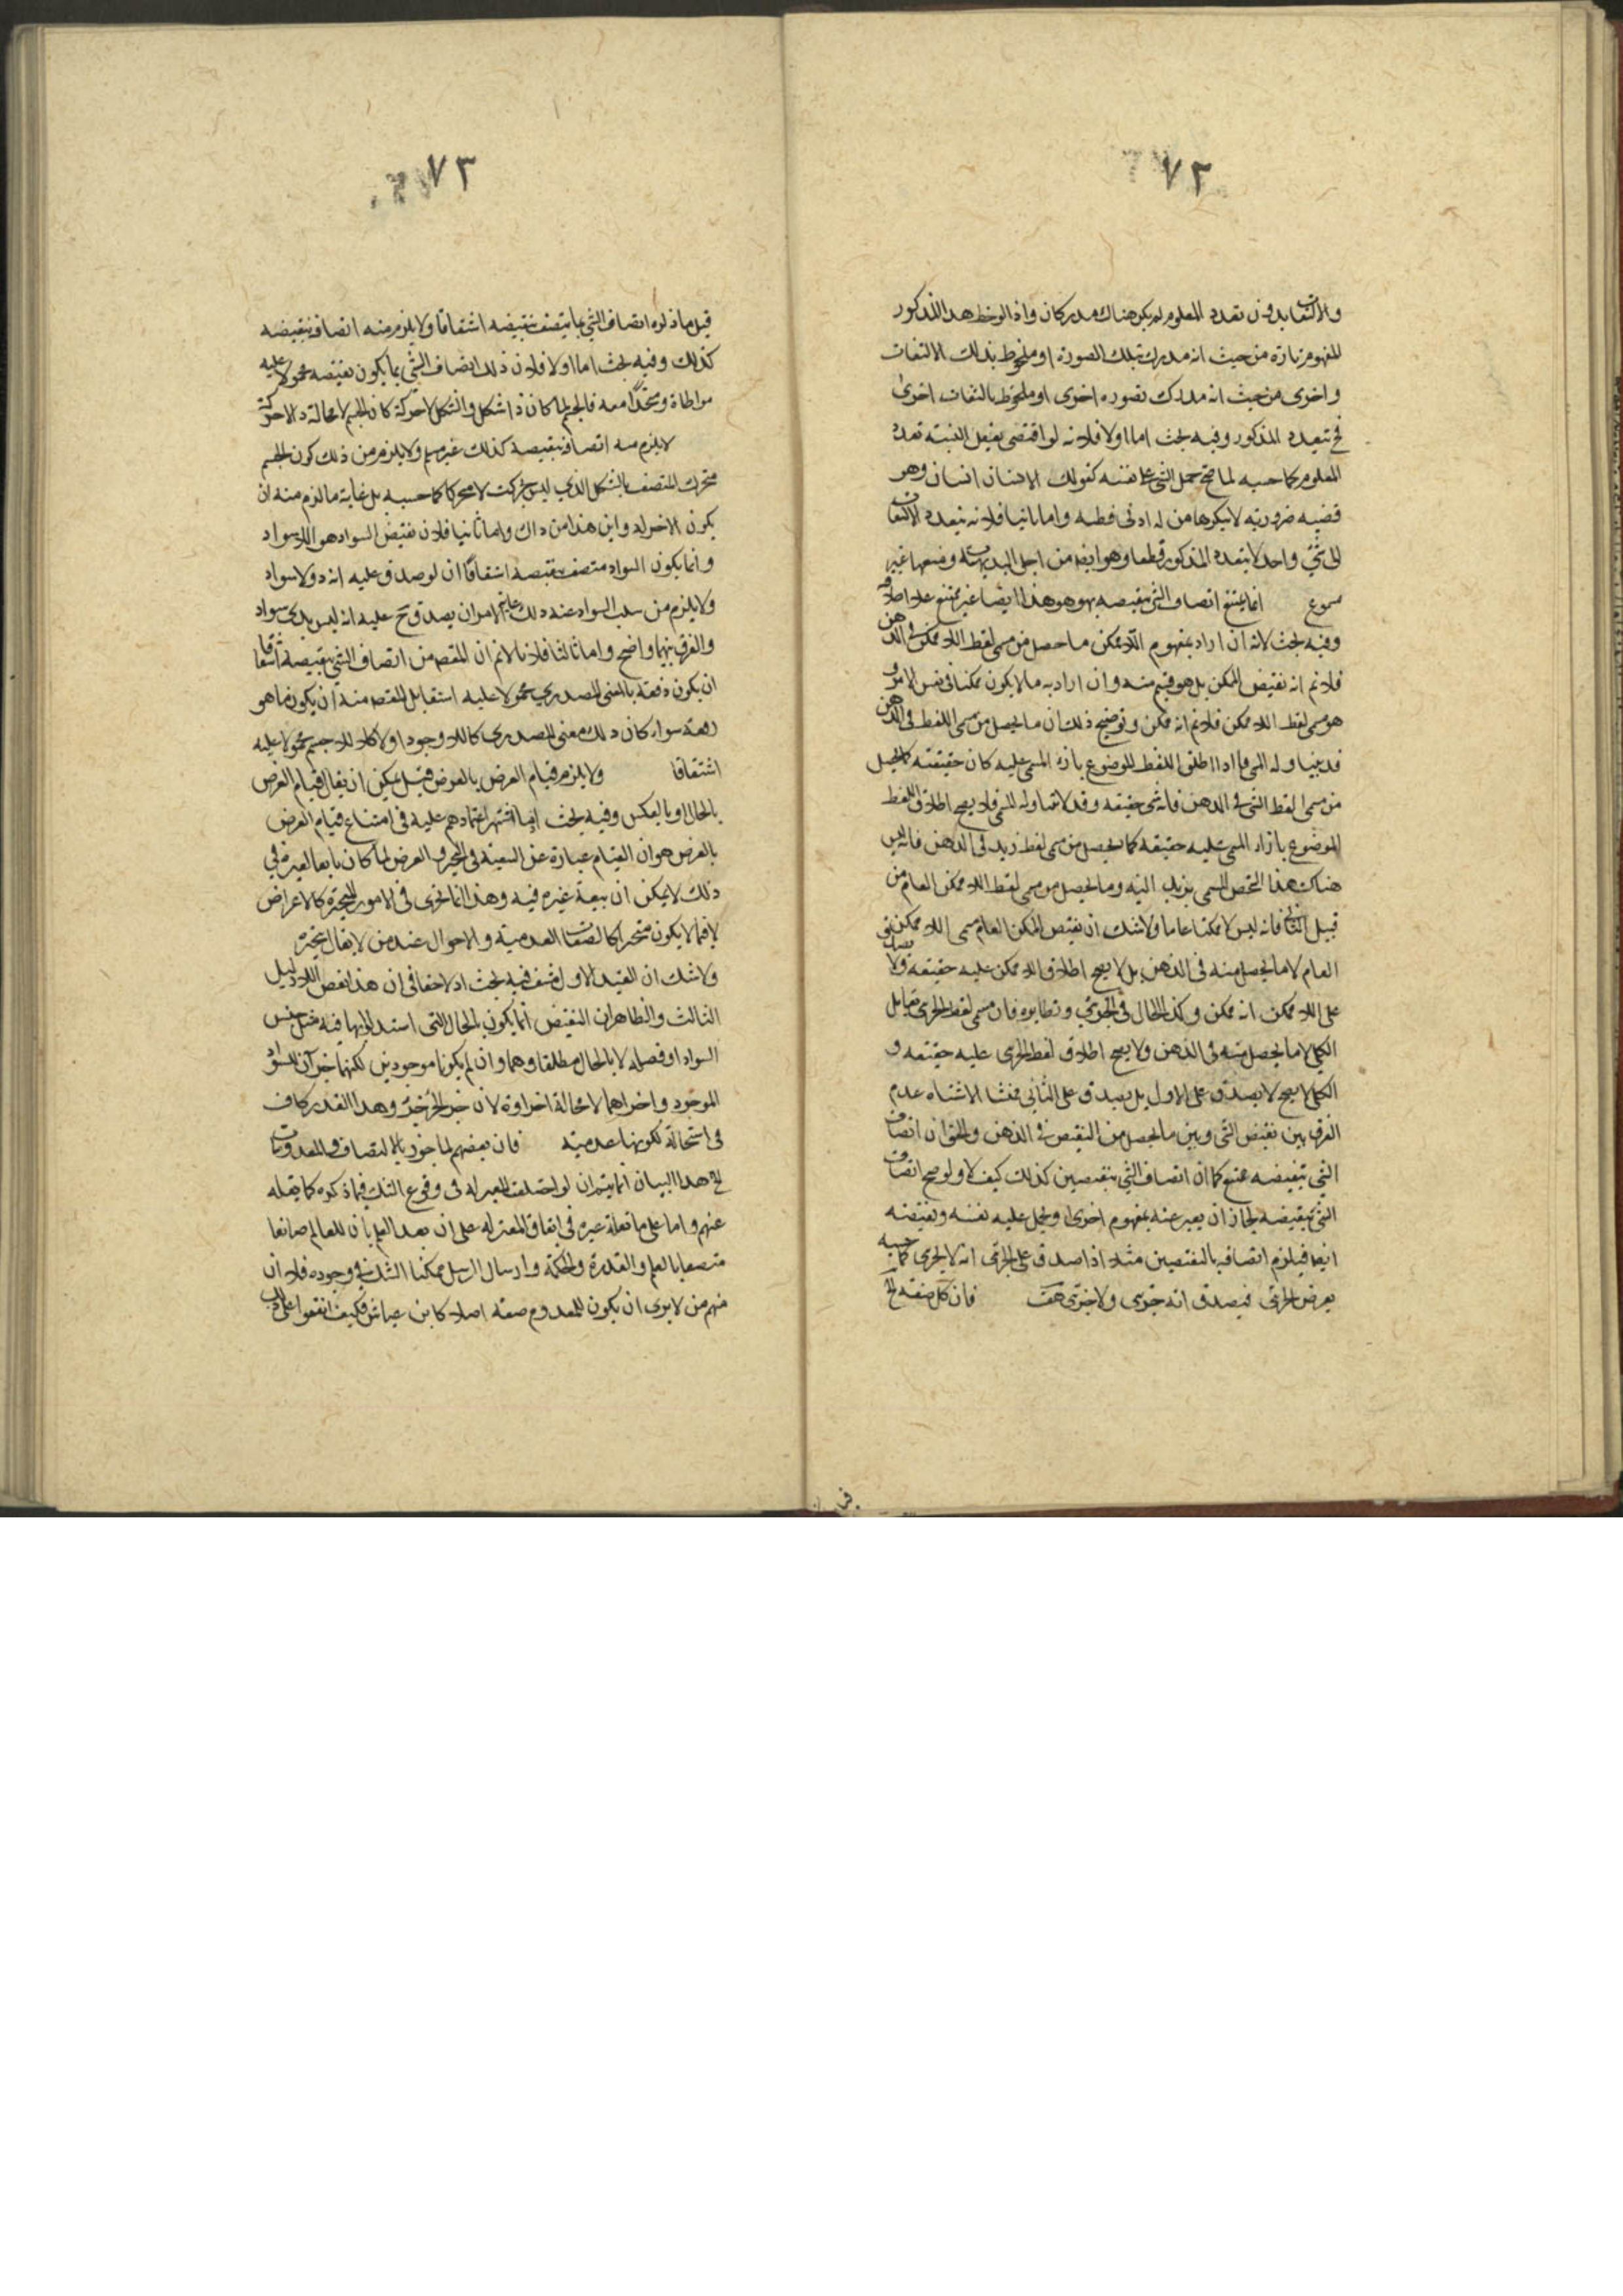 ٧٢
والالتفات بدون تعدد المعلوم لم يكن هناك مدركان واذا لوحظ هذا المذكور
المفهوم تارة من حيث انه مدرك بتلك الصورة او ملحوظ بذلك الالتفات
واخرى من حيث انه مدرك بصورة اخرى او ملحوظ بالتفات اخرى
فح يتعدد المذكور وفيه بحث اما اولا فلانه لو اقتضى تعقل النسبة تعدد
المعلوم كما حسبه لما صح حمل الشئ على نفسه كقولك الانسان انسان وهو
قضية ضرورية لا ينكرها من له ادنى فطنة واما ثانيا فلانه بتعدد الالتفات
الى شئ واحد لا يتعدد المذكور قطعا وهو ايضا من اجلى البديهيات ومنعها غير
مسموع انما يمتنع اتصاف الشئ بنقيضه بهو هو هذا ايضا غير ممتنع على اطلاقه
وفيه بحث لانه ان اراد بمفهوم اللاممكن ما حصل من مسمى لفظ اللاممكن في الذهن
فلانم انه نقيض الممكن بل هو قسم منه وان اراد به ما لا يكون ممكنا في نفس الامر و
هو مسمى لفظ اللاممكن فلانم انه ممكن وتوضيح ذلك ان ما يحصل من مسمى اللفظ في الذهن
قد يتناوله المسمى فاذا اطلق اللفظ الموضوع بازاء المسمى عليه كان حقيقته كما يحصل
من مسمى لفظ الشئ في الذهن فانه شئ حقيقة وقد لا يتناوله المسمى فلا يصح اطلاق اللفظ
الموضوع بازاء المسمى عليه حقيقة كما يحصل من مسمى لفظ زيد في الذهن فانه ليس
هناك هذا الشخص المسمى بزيد البتة وما يحصل من مسمى لفظ اللاممكن العام من
قبيل الثاني فانه ليس لا ممكنا عاما ولا شك ان نقيض الممكن العام مسمى اللاممكن
العام لا ما يحصل منه في الذهن بل لا يصح اطلاق اللاممكن عليه حقيقة ولا يصدق
على اللاممكن انه ممكن وكذا الحال في الجزئي ونظايره فان مسمى لفظ الجزئى يقابل
الكلي لا ما يحصل منه في الذهن ولا يصح اطلاق لفظ الجزى عليه حقيقة و
الكلي لا يصح لا يصدق على الاول بل يصدق على الثاني فمنشا الاشتباه عدم
الفرق بين نقيض الشئ وبين ما يحصل من النقيض في الذهن والحق ان اتصاف
الشئ بنقيضه ممتنع كما ان اتصاف الشئ بنقيضين كذلك كيف لا ولو صح اتصاف
الشئ بنقيضه لجاز ان يعبر عنه بمفهوم اخرى او يحمل عليه نفسه ونقيضه
ايضا فيلزم اتصافه بالنقيضين مثلا اذا صدق على الجزئى انه لا الجزى كما حسبه
يعرض الجزئى فيصدق انه جزئى ولا جزئى هف فان كل صفة الخ
٧٣
قيل ما ذكره اتصاف الشئ بما يتصف بنقيضه اشتقاقا ولا يلزم منه اتصافه بنقيضه
كذلك وفيه بحث اما اولا فلان ذلك اتصاف الشئ بما يكون نقيضه محمولا عليه
مواطاة ومتحدا معه فالجسم لما كان ذا شكل والشكل لا حركة كان الجسم لا محالة ذا لا حركة
لا يلزم منه اتصافه بنقيضه كذلك غير مسلم ولا يلزم من ذلك كون الجسم
متحرك المتصف بالشكل الذي ليس بحركت لا متحركا كما حسبه بل غاية ما لزم منه ان
يكون الاخر له واين هذا من ذاك واما ثانيا فلان نقيض السواد هو اللاسواد
وانما يكون السواد متصف بنقيضه اشتقاقا ان لو صدق عليه انه ذو لا سواد
ولا يلزم من سلب السواد عنه ذلك غاية الامر ان يصدق ح عليه انه ليس بذى سواد
والفرق بينهما واضح واما ثالثا فلانا لا نم ان المقصد من اتصاف الشئ بنقيضه اشتقاقا
ان يكون نقيضه بالمعنى المصدري محمولا عليه اشتقاقا بل المقصد منه ان يكون ما هو
رفعه سواء كان ذلك معنى المصدري كاللاوجود او لا كاللاجسم محمولا عليه
اشتقاقا ولا يلزم قيام العرض بالعرض قيل يمكن ان يقال قيام العرض
بالحال او بالعكس وفيه بحث اذ ما اشتهر اعتمادهم عليه في امتناع قيام العرض
بالعرض هو ان القيام عبارة عن التبعية في التحيز والعرض لما كان تابعا لغيره في
ذلك لا يمكن ان يتبعه غيره فيه وهذا انما يجرى في الامور المتحيزة كالاعراض
لا فيما لا يكون متحيزا كالصفات العدمية والاحوال عند من لا يقال بتحيزه
ولا شك ان القيد الاول فيه بحث اذ لا خفاء في ان هذا نقض للدليل
الثالث والظاهر ان النقيض انما يكون بالحال التي استدلوا بها فيه مثل جنس
السواد او فصله لا بالحال مطلقا وهما وان لم يكونا موجودين لكنهما جزآن للسواد
الموجود واجزاهما لا محالة اجزاؤه لان جزء الجزء جزء وهذا القدر كاف
في استحالة لكونها عدمية فان بعضهم لما جوز الاتصاف في المعدومات
الخ هذا البيان انما يتم ان لو اختلفت المعتزلة في وقوع الشك فيما ذكره كما نقله
عنهم واما على ما نقله غيره في اتفاق المعتزلة على ان بعد العلم بان للعالم صانعا
متصفا بالعلم والقدرة والحكمة وارسال الرسل يمكننا الشك في وجوده فلان
منهم من لا يرى ان يكون للمعدوم صفة اصلا كابن عياش فكيف اتفقوا على ذلك